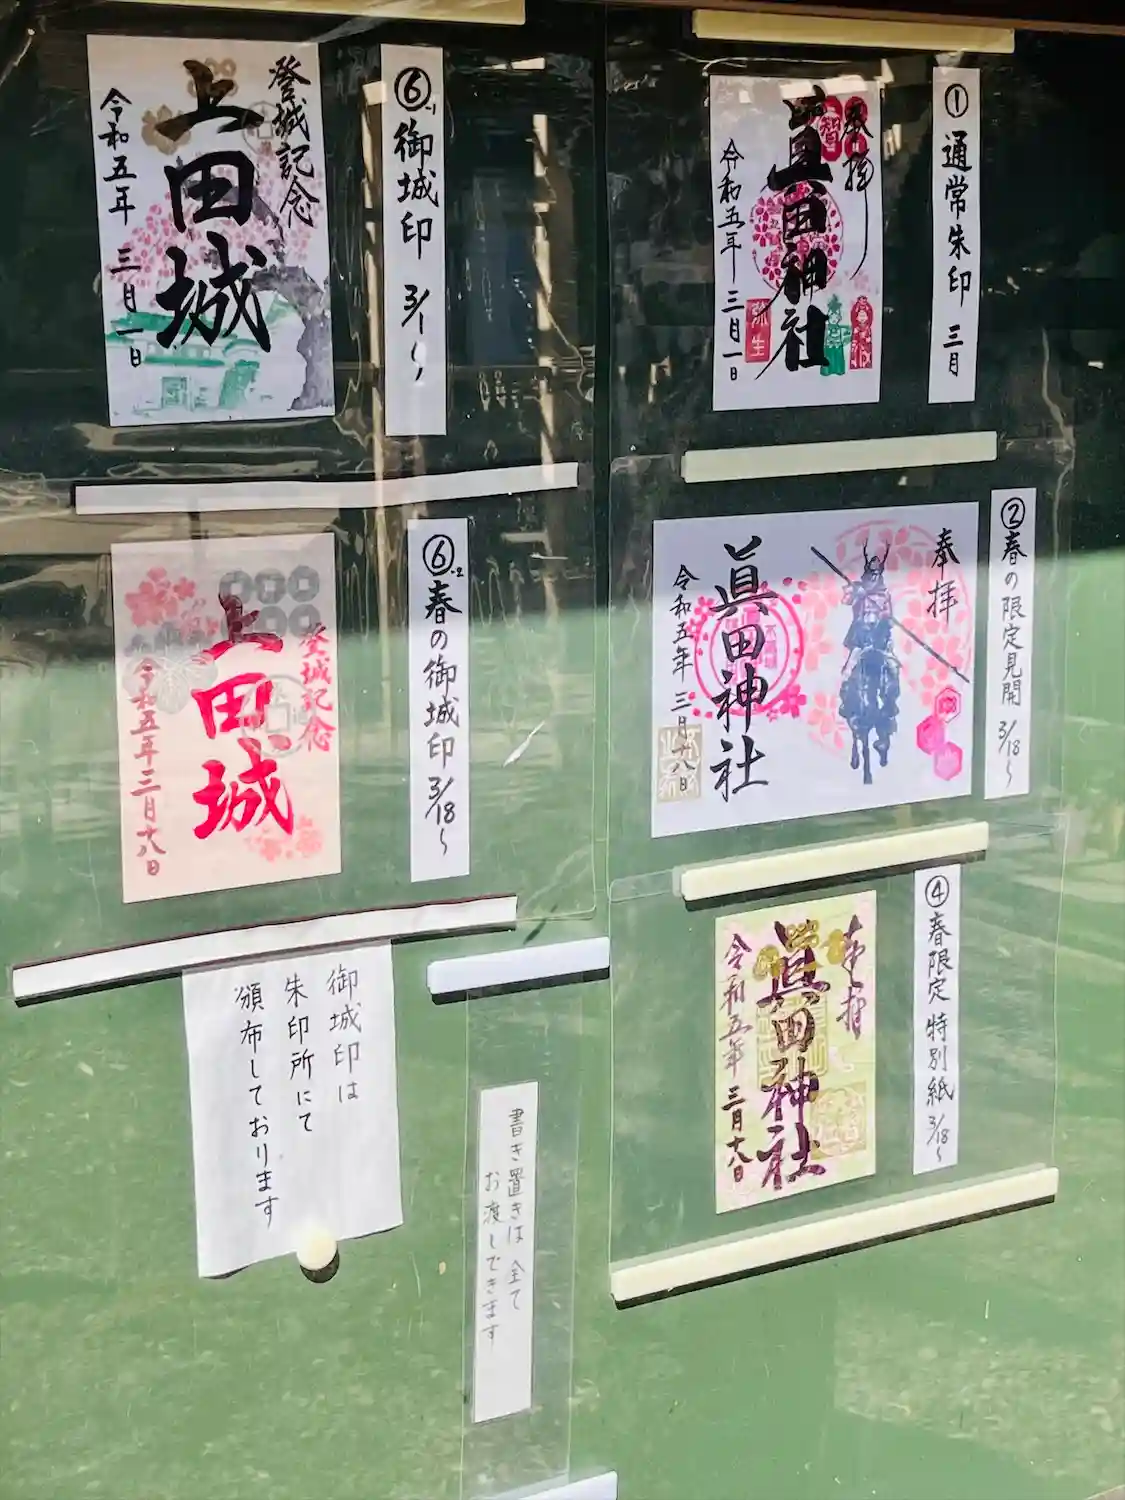 ①通常朱印 三月
奉拝
眞田神社
令和五年三月一日
弥生
②春の限定見開 3/18〜
奉拝
眞田神社
令和五年三月十八日
④春限定 特別紙 3/18〜
奉拝
眞田神社
令和五年三月十八日
⑥-1御城印 3/1〜
登城記念
上田城
令和五年三月一日
⑥-2春の御城印 3/18〜
登城記念
上田城
令和五年三月十八日
御城印は
朱印所にて
頒布しております
書き置きは全て
お渡しできます